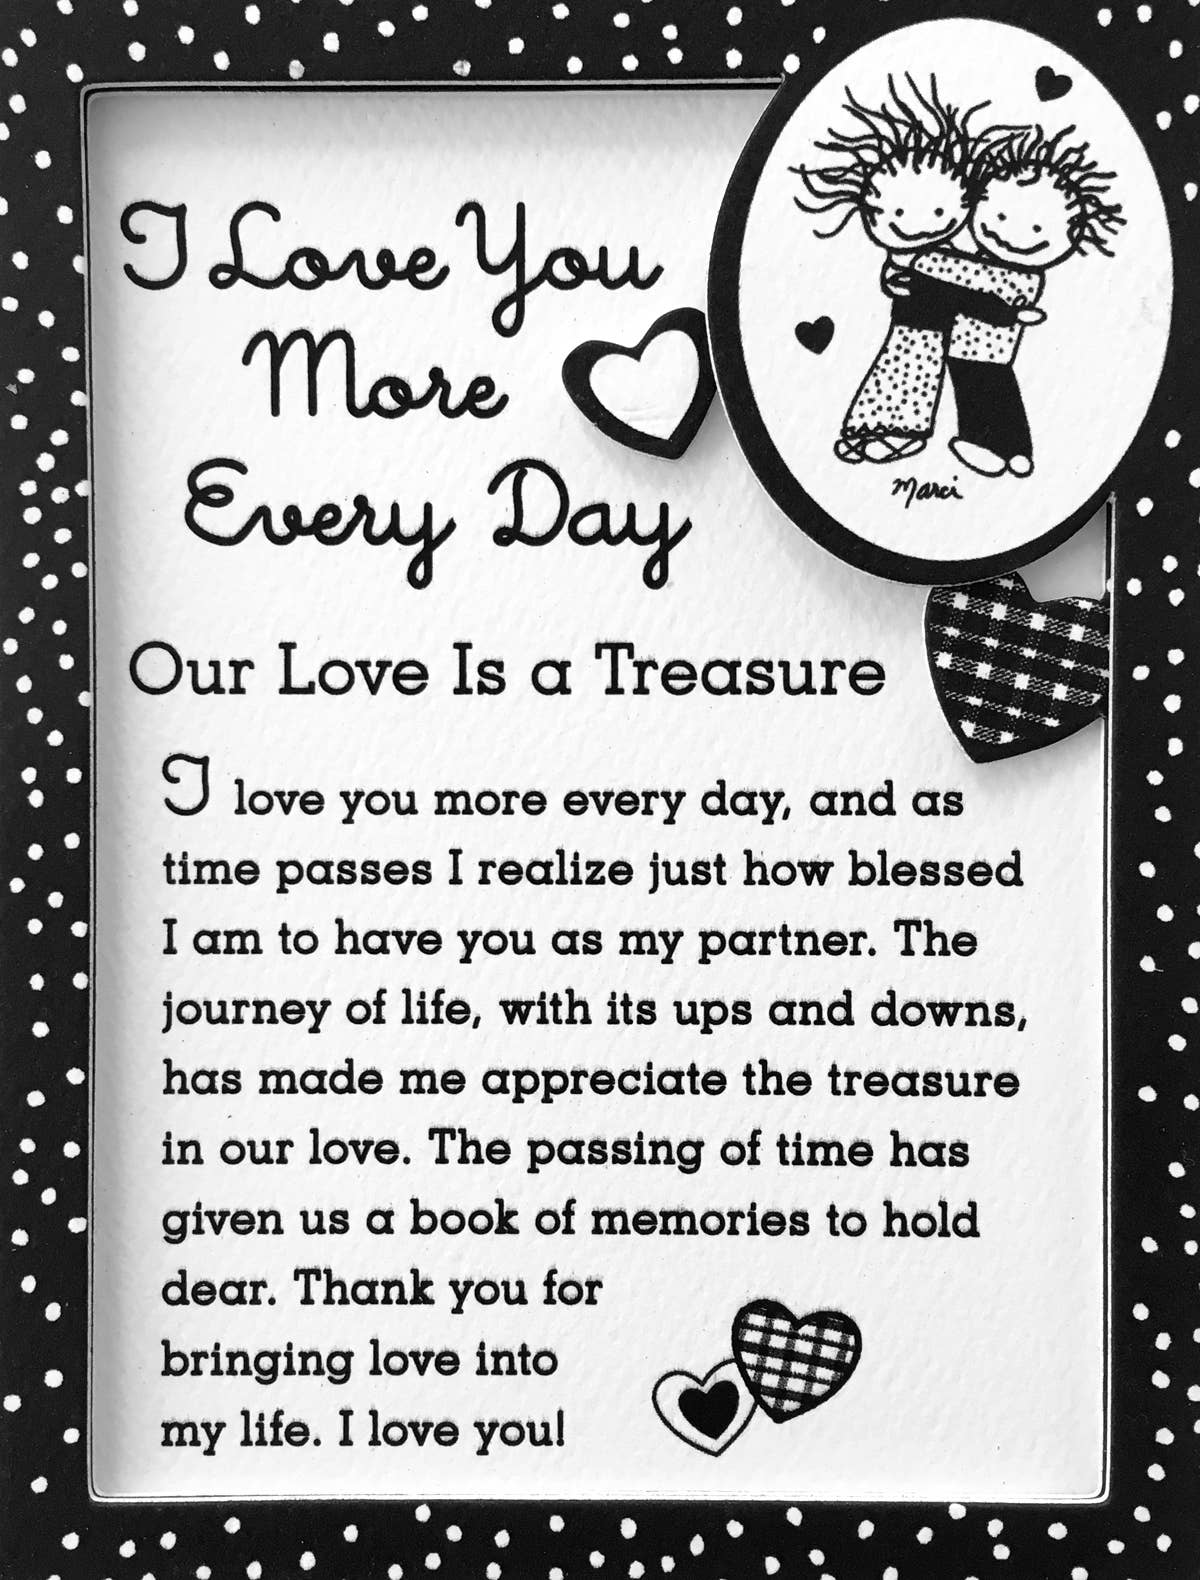 I Love You
More
Every Day
Marci
Our Love Is a Treasure
I love you more every day, and as
time passes I realize just how blessed
I am to have you as my partner. The
journey of life, with its ups and downs,
has made me appreciate the treasure
in our love. The passing of time has
given us a book of memories to hold
dear. Thank you for
bringing love into
my life. I love you!